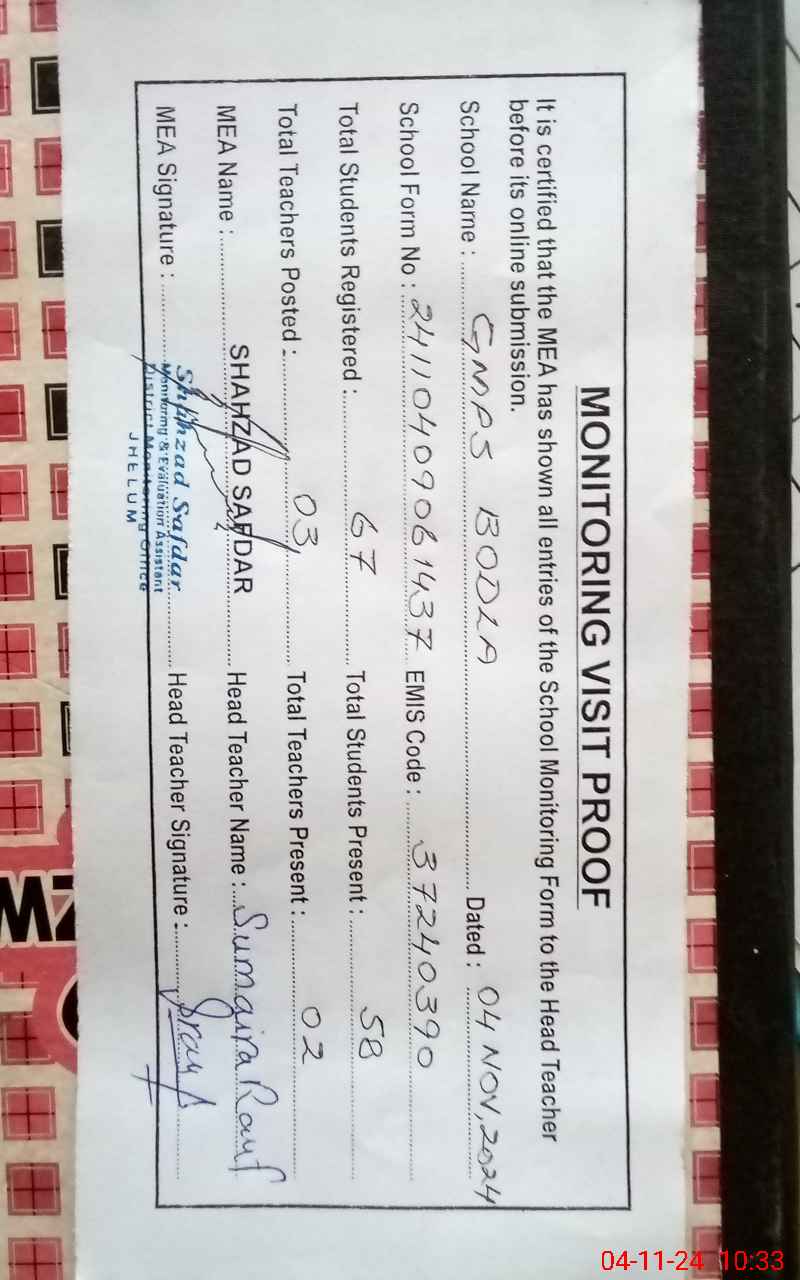 MONITORING VISIT PROOF
It is certified that the MEA has shown all entries of the School Monitoring Form to the Head Teacher
before its online submission.
School Name : GMPS BODLA Dated : 04 NOV, 2024
School Form No : 24110409061437 EMIS Code : 37240390
Total Students Registered : 67 Total Students Present : 58
Total Teachers Posted : 03 Total Teachers Present : 02
MEA Name : SHAHZAD SAFDAR Head Teacher Name : Sumaira Rauf
MEA Signature : Head Teacher Signature :
Shahzad Safdar
Monitoring & Evaluation Assistant
District Monitoring Office
JHELUM
04-11-24 10:33